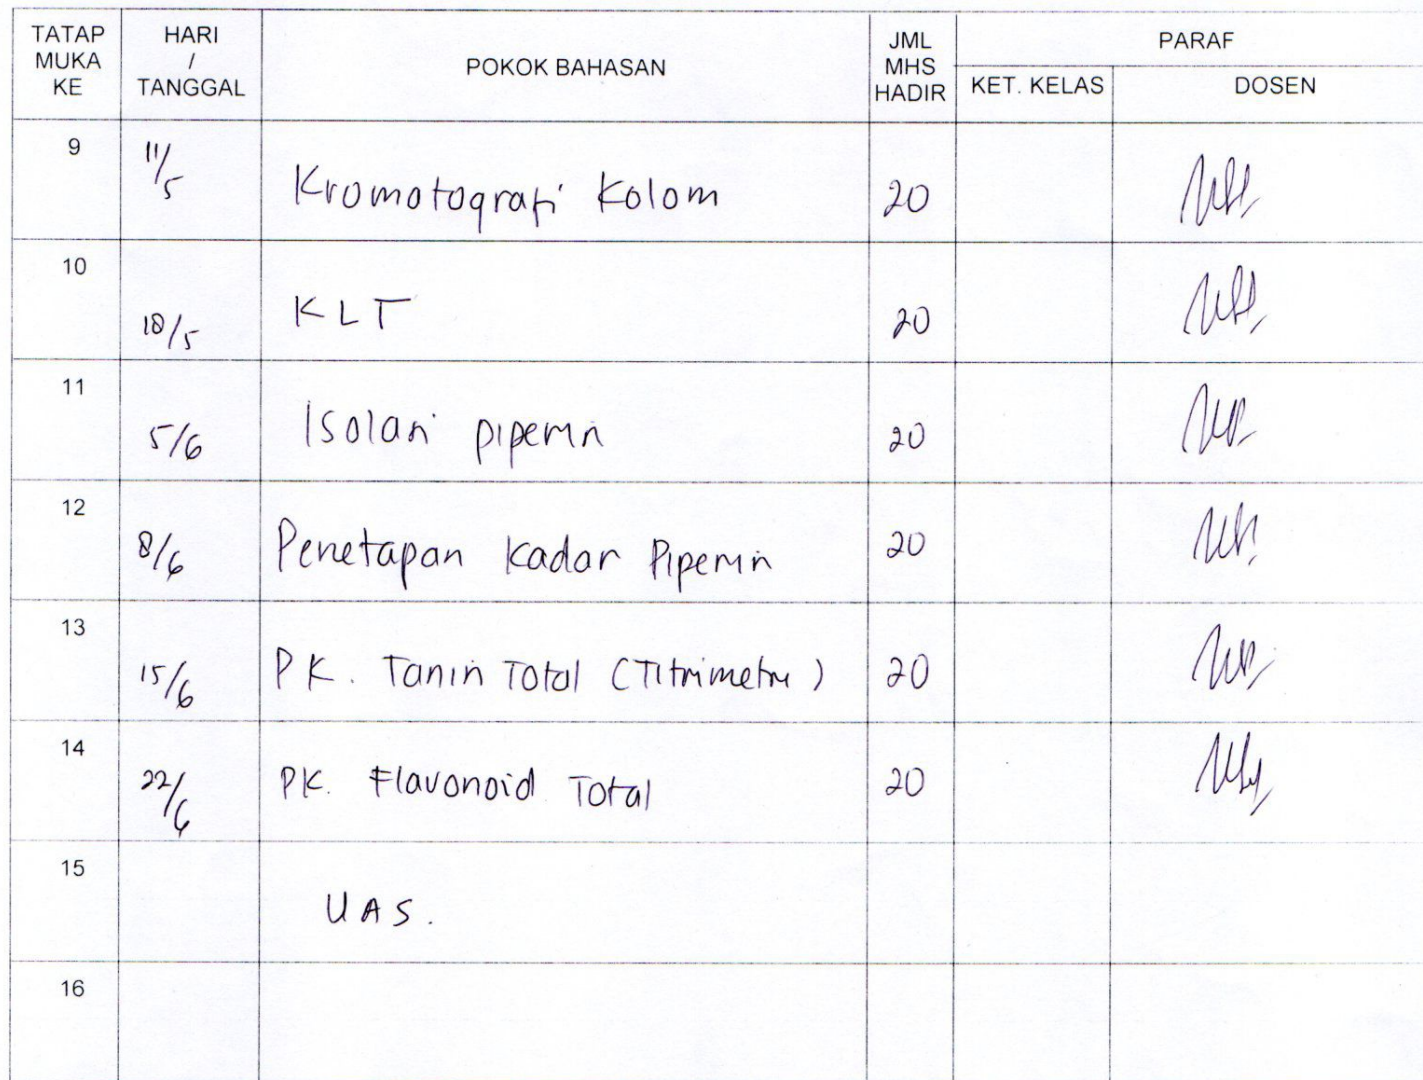 TATAP MUKA KE | HARI / TANGGAL | POKOK BAHASAN | JML MHS HADIR | PARAF
KET. KELAS | DOSEN
9 | 11/5 | Kromatografi Kolom | 20
10 | 18/5 | KLT | 20
11 | 5/6 | Isolasi piperin | 20
12 | 8/6 | Penetapan Kadar Piperin | 20
13 | 15/6 | PK. Tanin Total (Titrimetri) | 20
14 | 22/6 | PK. Flavonoid Total | 20
15 | UAS.
16